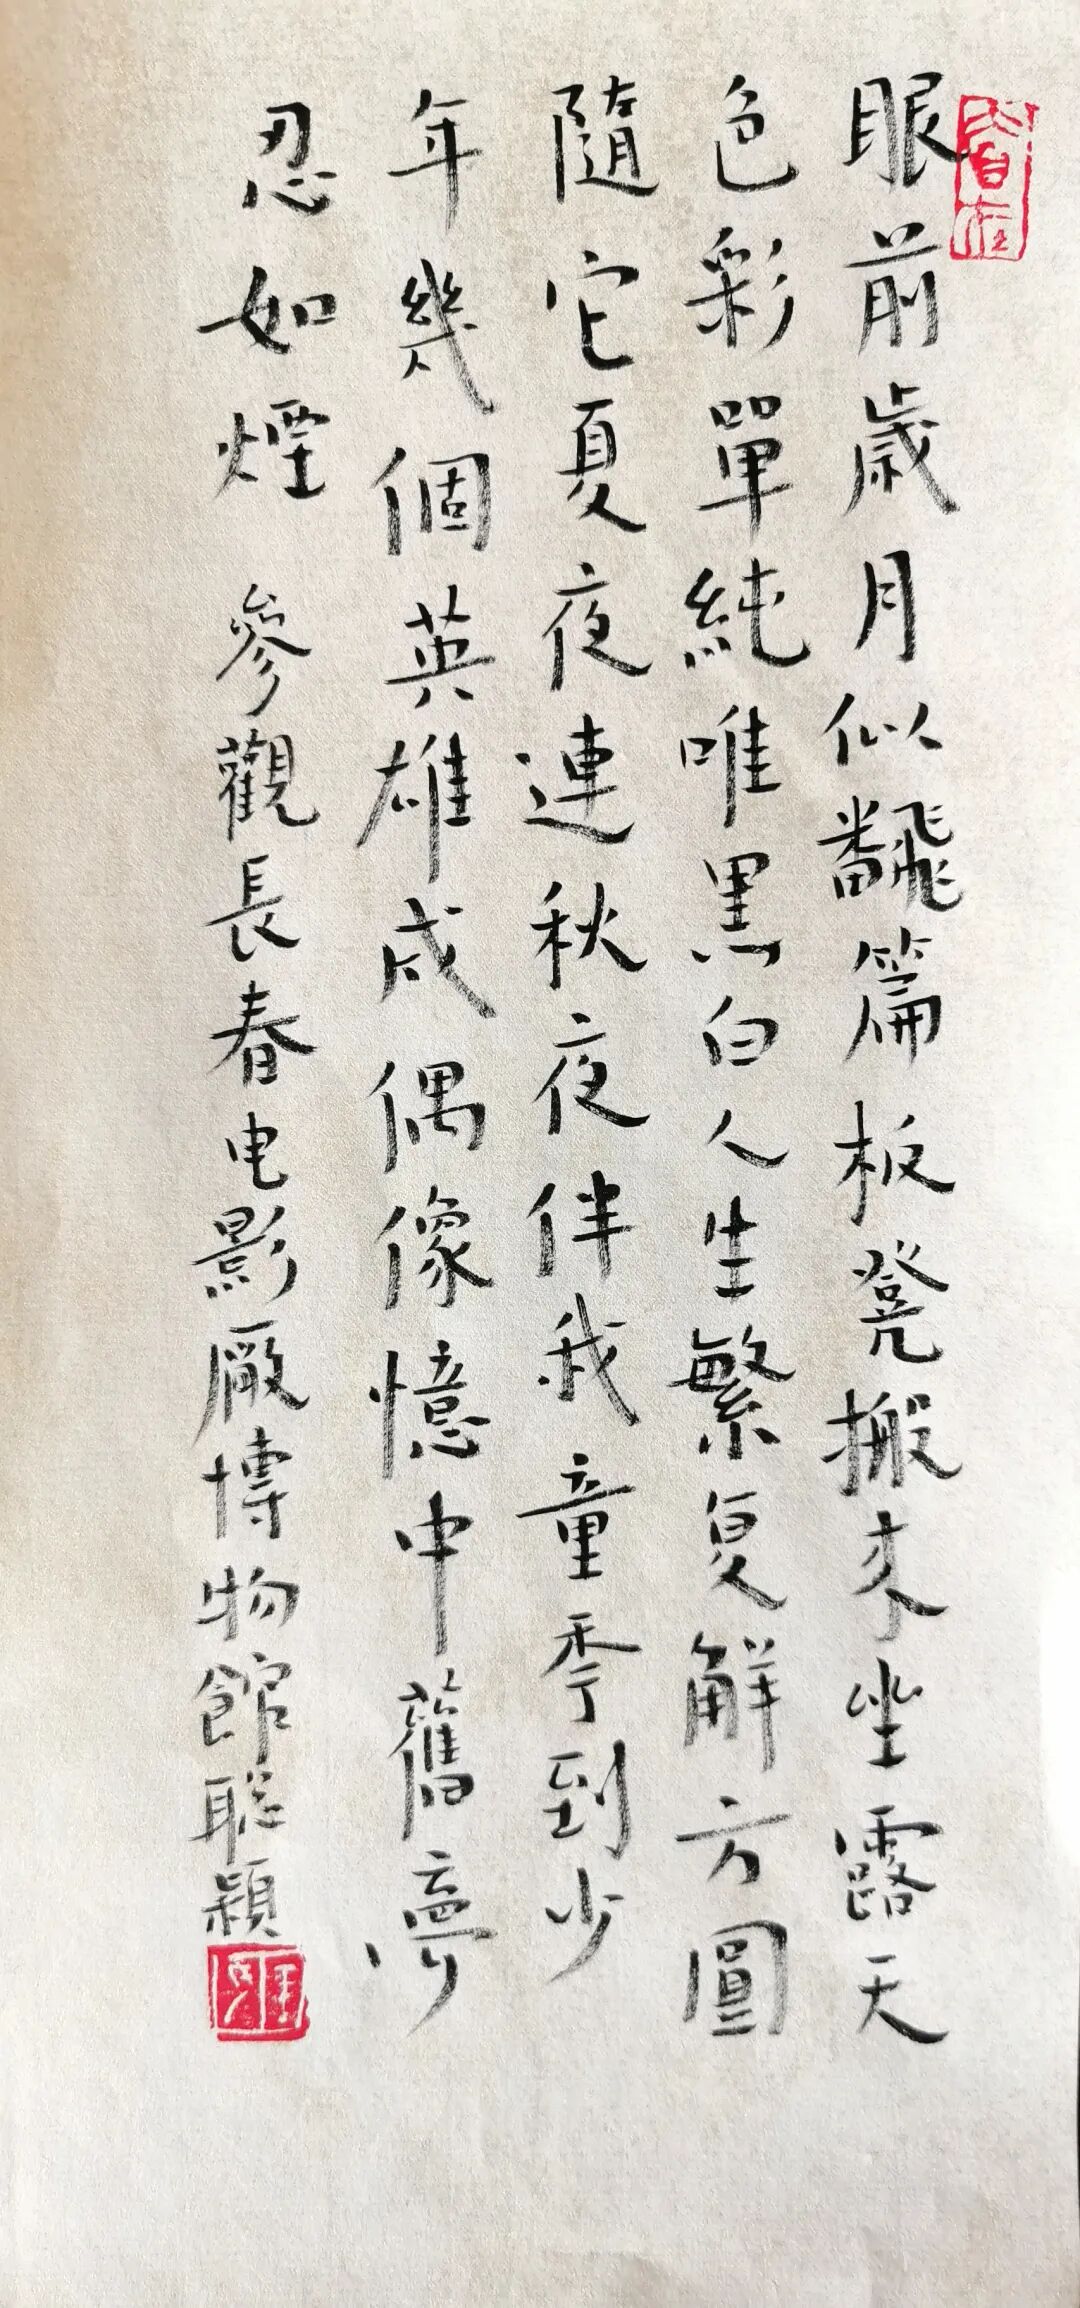 眼前歲月似飜篇板凳搬来坐露天
色彩單純唯黑白人生繁复解方圓
隨它夏夜連秋夜伴我童季到少
年幾個英雄成偶像憶中舊夢
忍如煙 參觀長春电影廠博物館聪穎